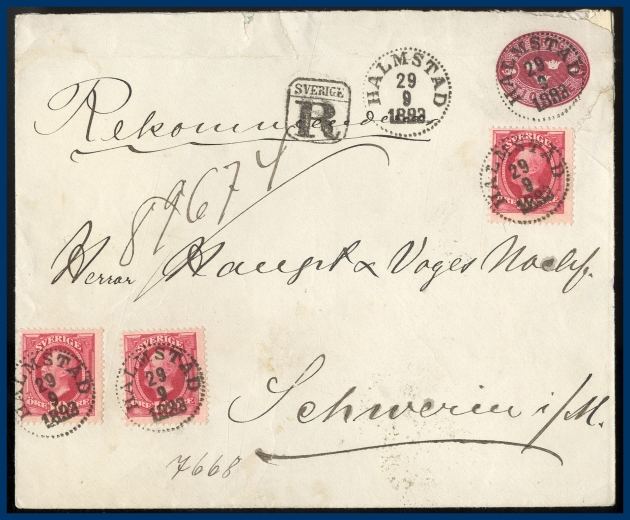 HALMSTAD
29
9
1893
HALMSTAD
29
9
1893
SVERIGE
R
Rekommenderas
SVERIGE
HALMSTAD
29
9
1893
89674
Herrar Haupt & Voges Nachf.
SVERIGE
ÖRE
HALMSTAD
29
9
1893
SVERIGE
ÖRE ÖRE
HALMSTAD
29
9
1893
Schwerin i/M.
7668